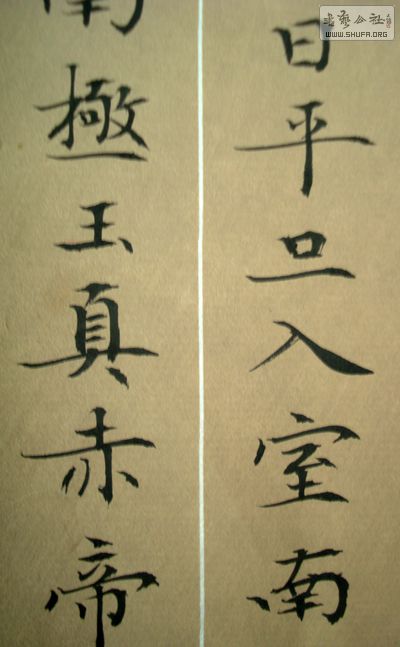 日平旦入室南
南極玉真赤帝
书艺公社
WWW.SHUFA.ORG